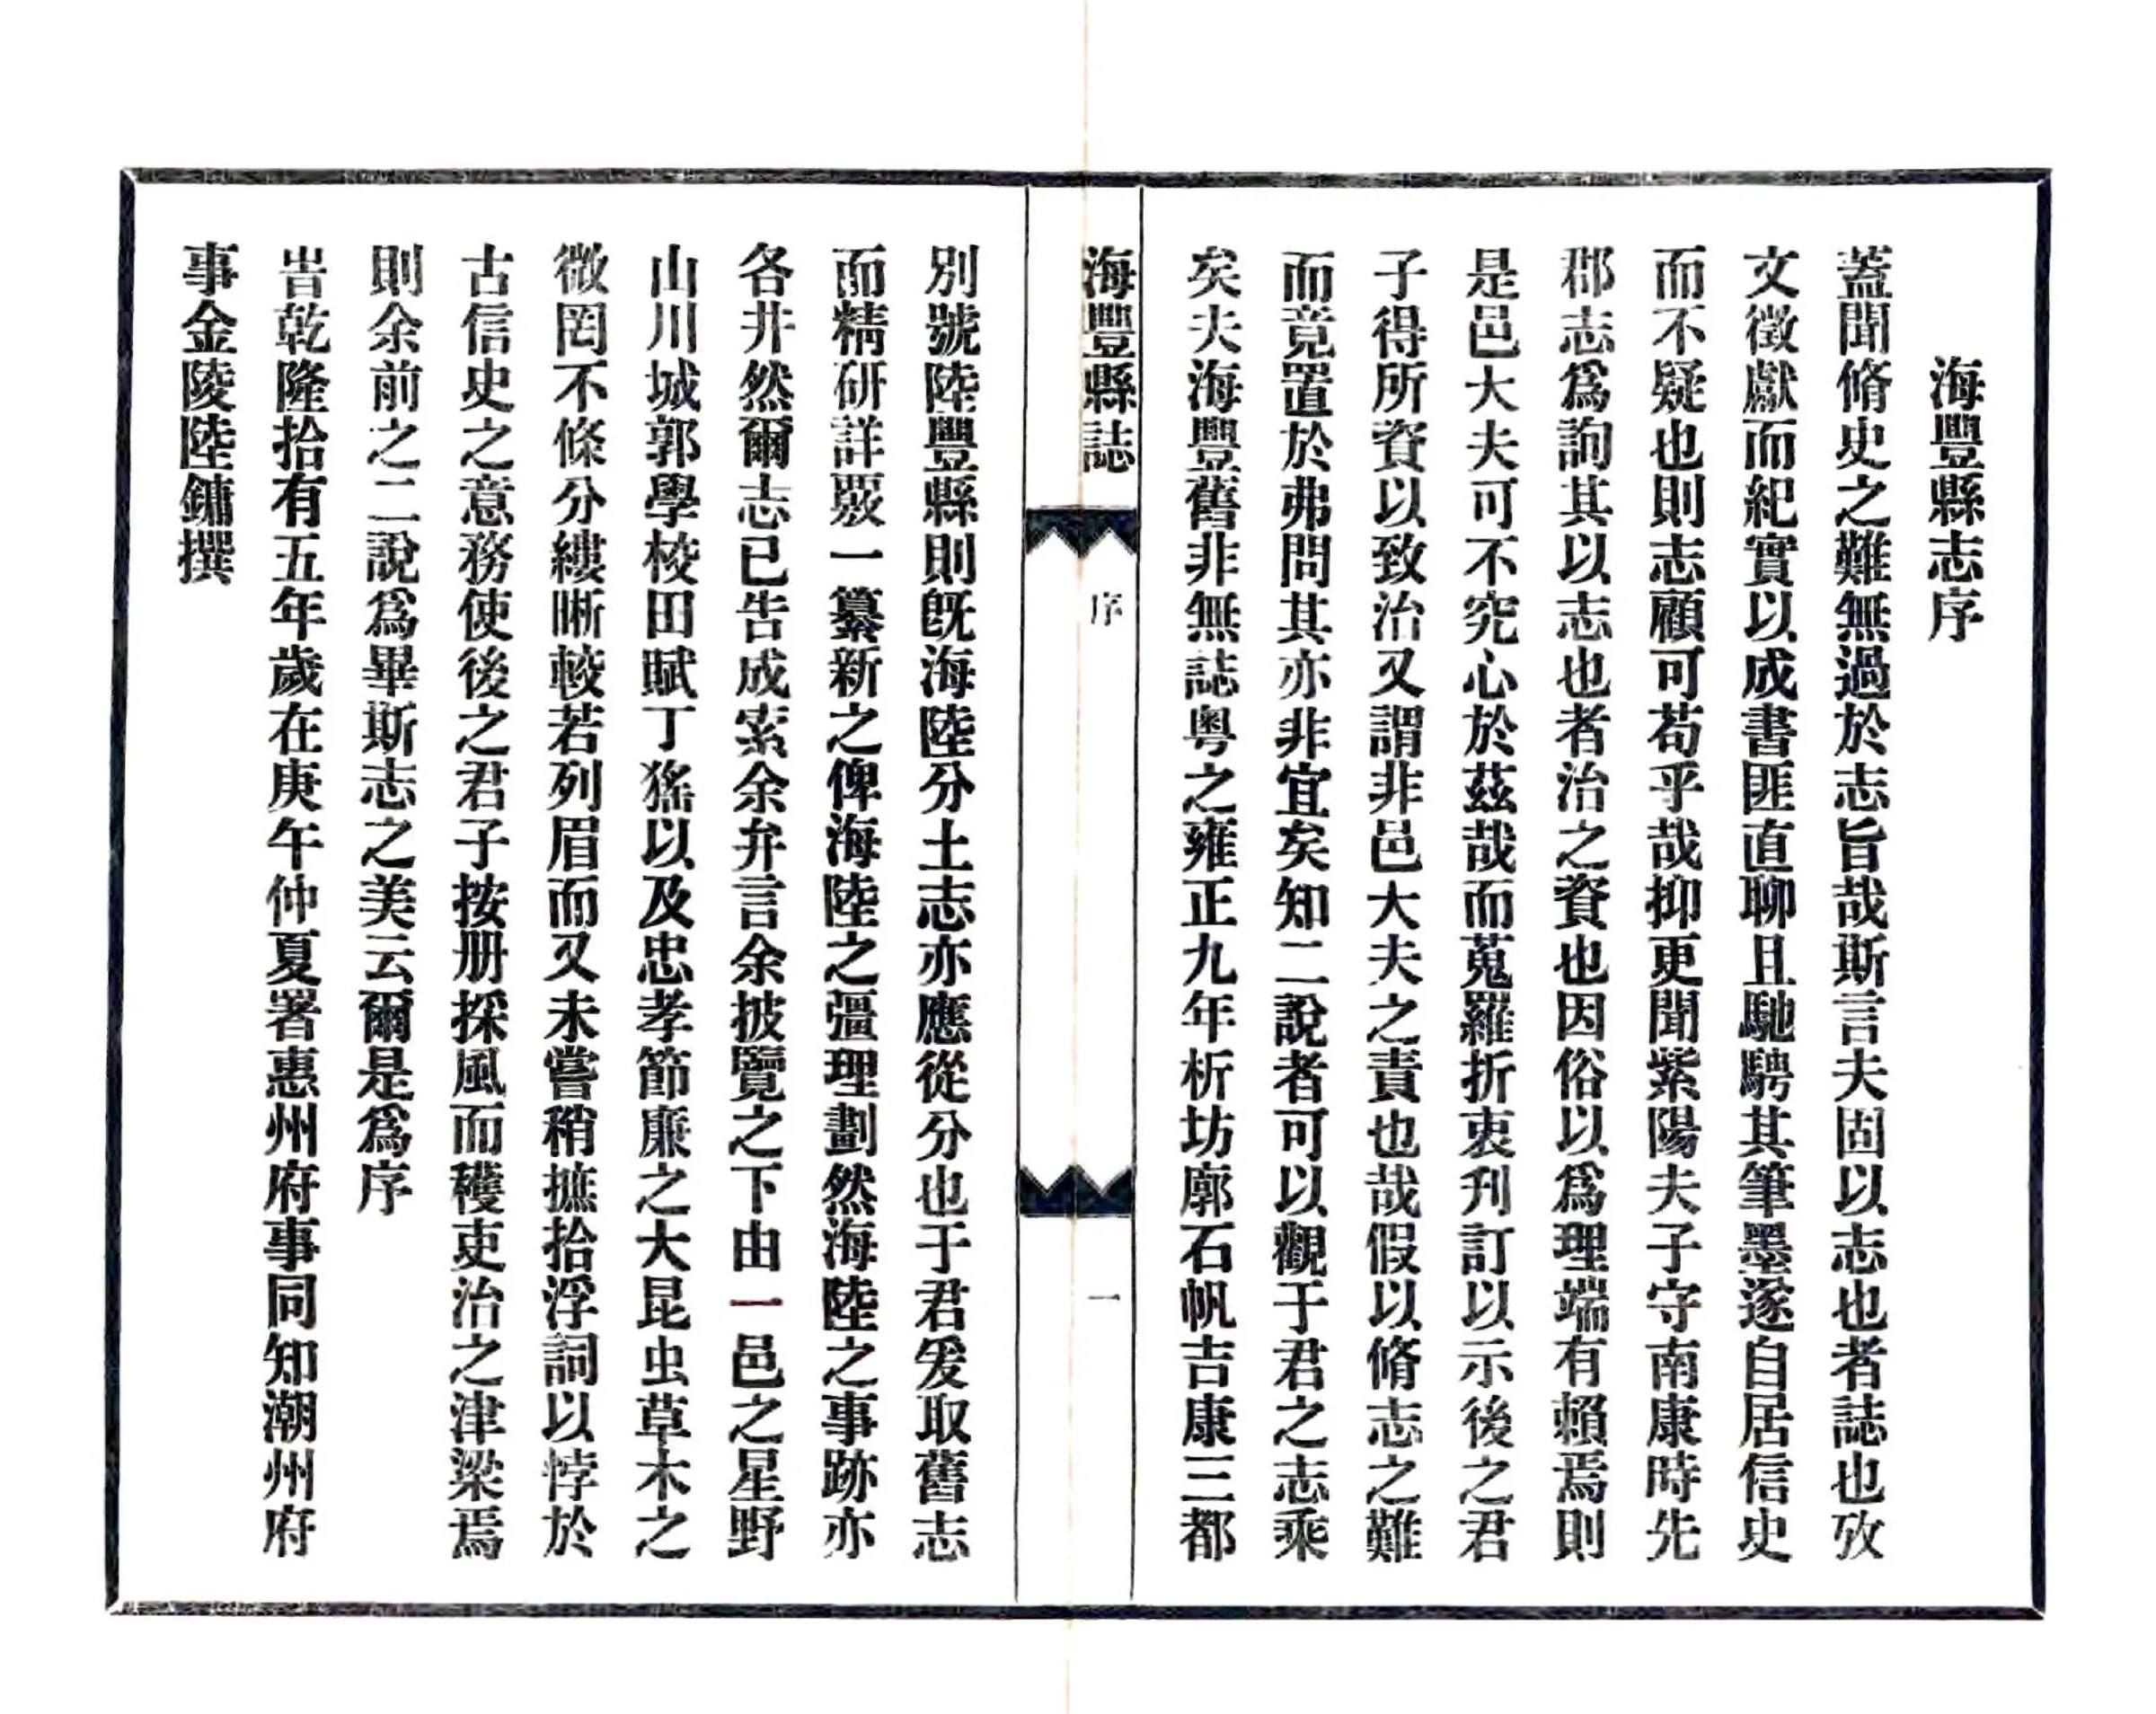 海豐縣志序
蓋聞脩史之難無過於志旨哉斯言夫固以志也者誌也攷
文徵獻而紀實以成書匪直聊且馳騁其筆墨遂自居信史
而不疑也則志顧可苟乎哉抑更聞紫陽夫子守南康時先
郡志爲詢其以志也者治之資也因俗以爲理端有賴焉則
是邑大夫可不究心於茲哉而蒐羅折衷刋訂以示後之君
子得所資以致治又謂非邑大夫之責也哉假以脩志之難
而竟置於弗問其亦非宜矣知二說者可以觀于君之志乘
矣夫海豐舊非無誌粵之雍正九年析坊廓石帆吉康三都
海豐縣誌
序
一
別號陸豐縣則旣海陸分土志亦應從分也于君爰取舊志
而精研詳覈一纂新之俾海陸之彊理劃然海陸之事跡亦
各井然爾志已告成索余弁言余披覽之下由一邑之星野
山川城郭學校田賦丁猺以及忠孝節廉之大昆虫草木之
微罔不條分縷晰較若列眉而又未嘗稍摭拾浮詞以悖於
古信史之意務使後之君子按册採風而穫吏治之津梁焉
則余前之二說爲畢斯志之美云爾是爲序
旹乾隆拾有五年歲在庚午仲夏署惠州府事同知潮州府
事金陵陸鏞撰